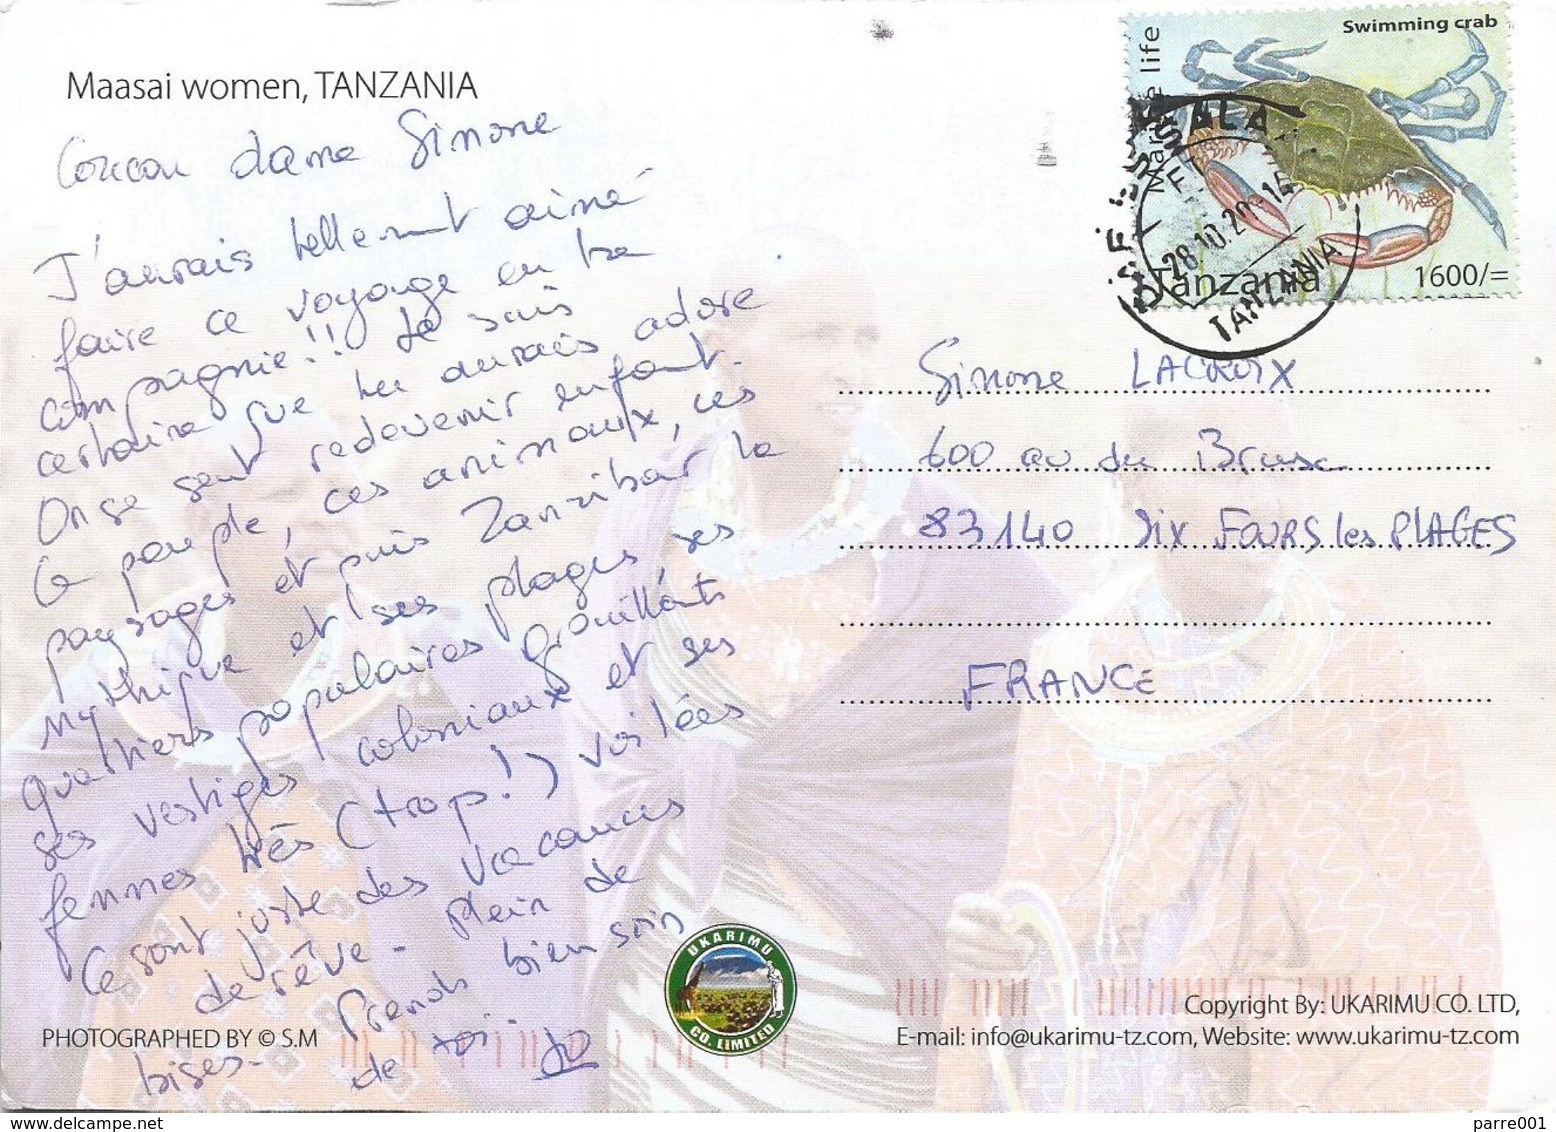 Maasai women, TANZANIA
Coucou dame Simone
J'aurais tellement aimé
faire ce voyage en ta
compagnie!! Je suis
certaine que tu aurais adoré
On se sent redevenir enfant.
Ce peuple, ces animaux, ces
paysages et puis Zanzibar la
mythique et ses plages ses
quartiers populaires grouillants
ses vestiges coloniaux et ses
femmes très (trop!) voilées
Ce sont juste des vacances
de rêve - Plein de
bises - Prends bien soin
de toi.
PHOTOGRAPHED BY © S.M
Swimming crab
Marine life
Tanzania
1600/=
28.10.20
TANZANIA
Simone LACROIX
600 av du Brusc
83140 SIX FOURS les PLAGES
FRANCE
UKARIMU
CO. LIMITED
Copyright By: UKARIMU CO. LTD,
E-mail: info@ukarimu-tz.com, Website: www.ukarimu-tz.com
delcampe.net
parre001